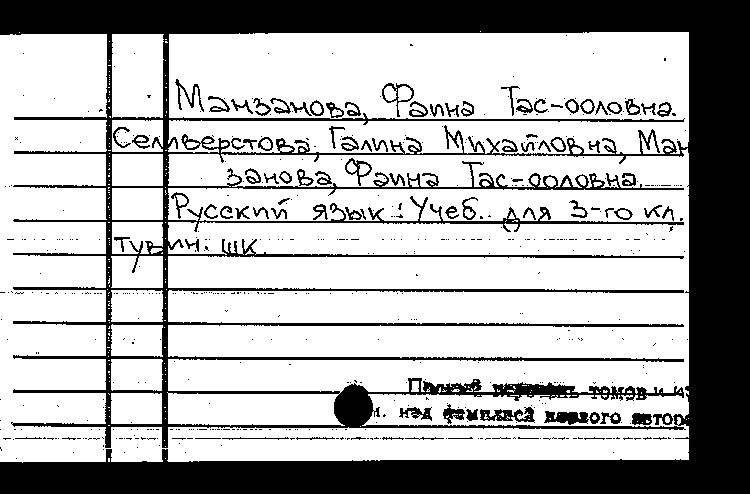 Манзанова, Фаина Тас-ооловна.
Селиверстова, Галина Михайловна, Ман
занова, Фаина Тас-ооловна.
Русский язык : Учеб. для 3-го кл.
тувин. шк.
Полный перечень томов и из
м. над фамилией первого автора